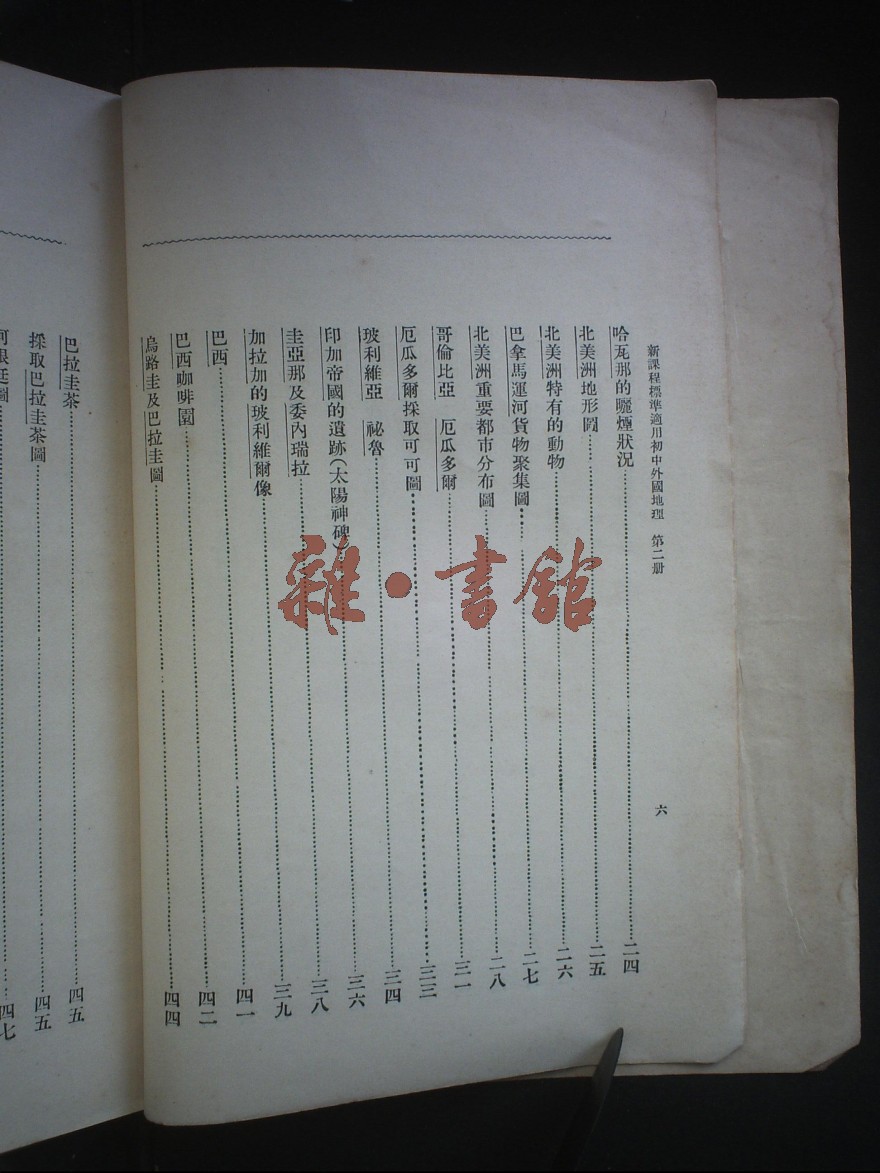 新課程標準適用初中外國地理 第二册 六
哈瓦那的曬煙狀況 二四
北美洲地形圖 二五
北美洲特有的動物 二六
巴拿馬運河貨物聚集圖 二七
北美洲重要都市分布圖 二八
哥倫比亞 厄瓜多爾 三一
厄瓜多爾採取可可圖 三三
玻利維亞 祕魯 三四
印加帝國的遺跡(太陽神碑) 三六
圭亞那及委內瑞拉 三八
加拉加的玻利維爾像 三九
巴西 四一
巴西咖啡園 四二
烏路圭及巴拉圭圖 四四
巴拉圭茶 四五
採取巴拉圭茶圖 四五
根廷圖 四七
雜·書館